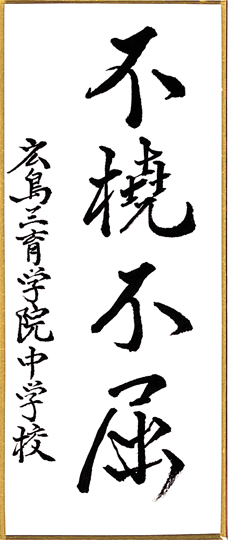 不撓不屈
広島三育学院中学校